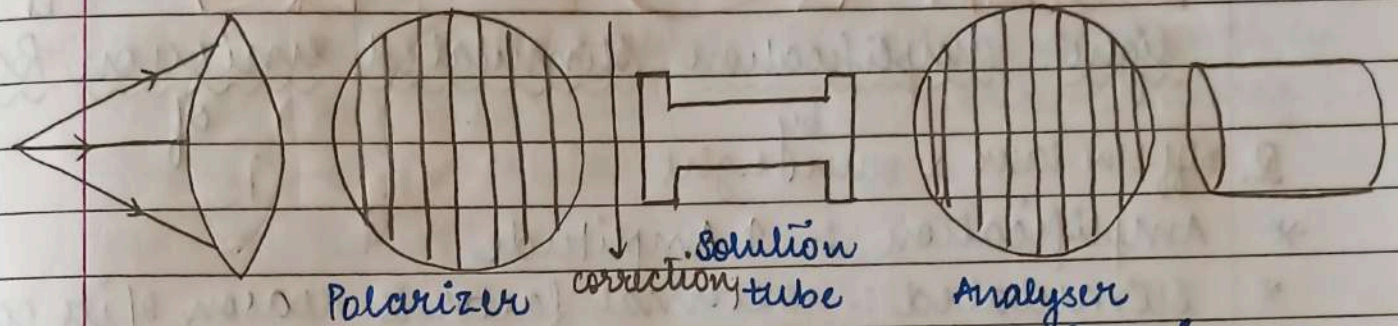 Polarizer correction, .solution tube Analyser